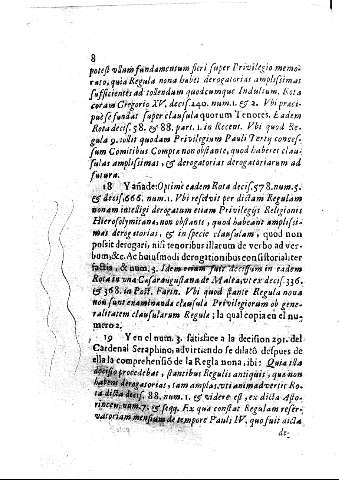 8
potest vllum fundamentum fieri super Privilegio memo-
rato, quia Regula nona habet derogatorias amplissimas
sufficientes ad tollendum quodcumque Indultum. Rota
coram Gregorio XV. decis. 240. num. 1. & 2. Vbi præci-
puè se fundat super clausula quorum Tenores. Eadem
Rota decis. 58. & 88. part. 1. in Recent. Vbi quod Re-
gula 9. tollit quodam Privilegium Pauli Tertij conces-
sum Comitibus Compta non obstante, quod haberet clau-
sulas amplissimas, & derogatorias derogatoriarum ad
futura.
18 Y añade: Optimè eadem Rota decis. 578. num. 5.
& decis. 666. num. 1. Vbi resolvit per dictam Regulam
nonam intelligi derogatum etiam Privilegijs Religionis
Hierosolymitanæ, non obstante, quod habeant amplissi-
mas derogatorias, & in specie clausulam, quod non
possit derogari, nisi tenoribus illarum de verbo ad ver-
bum, &c. Ac huiusmodi derogationibus consistorialiter
factis, & num. 3. Idem etiam fuit decissum in eadem
Rota in vna Cæsaraugustana de Malta, vt ex decis. 336.
& 368. in Post. Farin. Vbi quod stante Regula nona
non sunt examinanda clausula Privilegiorum ob gene-
ralitatem clausularum Regula; la qual copia en el nu-
mero 2.
19 Y en el num. 3. satisface a la decision 291. del
Cardenal Seraphino, advirtiendo se dilatò despues de
ella la comprehensiò de la Regla nona, ibi: Quia illa
decisio procedebat, stantibus Regulis antiquis, qua non
habent derogatorias, tam amplas, vti animadvertit Ro-
ta dicta decis. 88. num. 1. & videre est, ex dicta Asto-
rincen. num. 7. & seqq. Ex qua constat Regulam reser-
vatoriam mensium de tempore Pauli IV. quo fuit dicta
de-